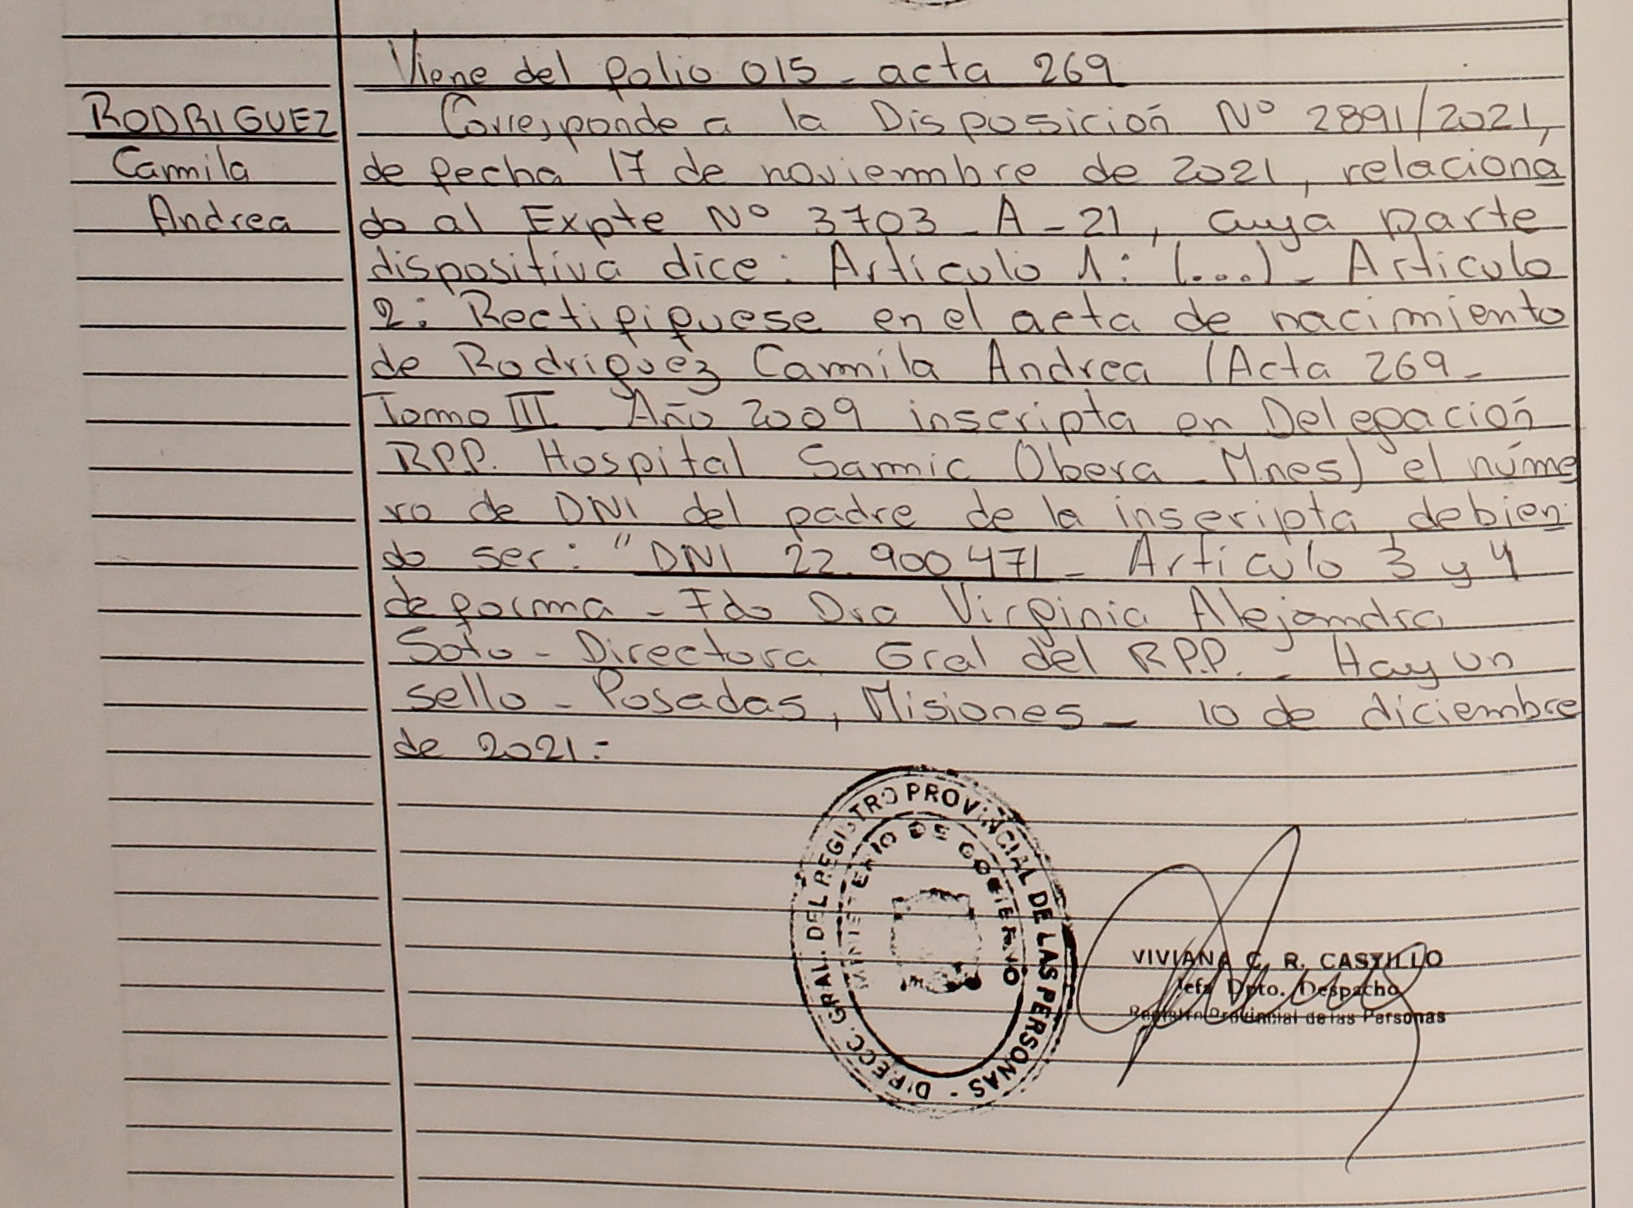 Viene del folio 015 - acta 269
RODRIGUEZ
Camila
Andrea
Corresponde a la Disposición Nº 2891/2021,
de fecha 17 de noviembre de 2021, relaciona
do al Expte Nº 3703 - A - 21, cuya parte
dispositiva dice: Artículo 1: (...) - Artículo
2: Rectifíquese en el acta de nacimiento
de Rodriguez Camila Andrea (Acta 269 -
Tomo III - Año 2009 inscripta en Delegación
RPP. Hospital Samic Obera - Mnes) el núme
ro de DNI del padre de la inscripta, debien
do ser: "DNI 22.900471 - Artículo 3 y 4
de forma - Fdo Dra Virginia Alejandra
Soto - Directora Gral del RPP. - Hay un
sello - Posadas, Misiones - 10 de diciembre
de 2021.-
DIRECC. GRAL. DEL REGISTRO PROVINCIAL DE LAS PERSONAS -
MINISTERIO DE GOBIERNO
VIVIANA C. R. CASTILLO
Jefa Dpto. Despacho
Registro Provincial de las Personas